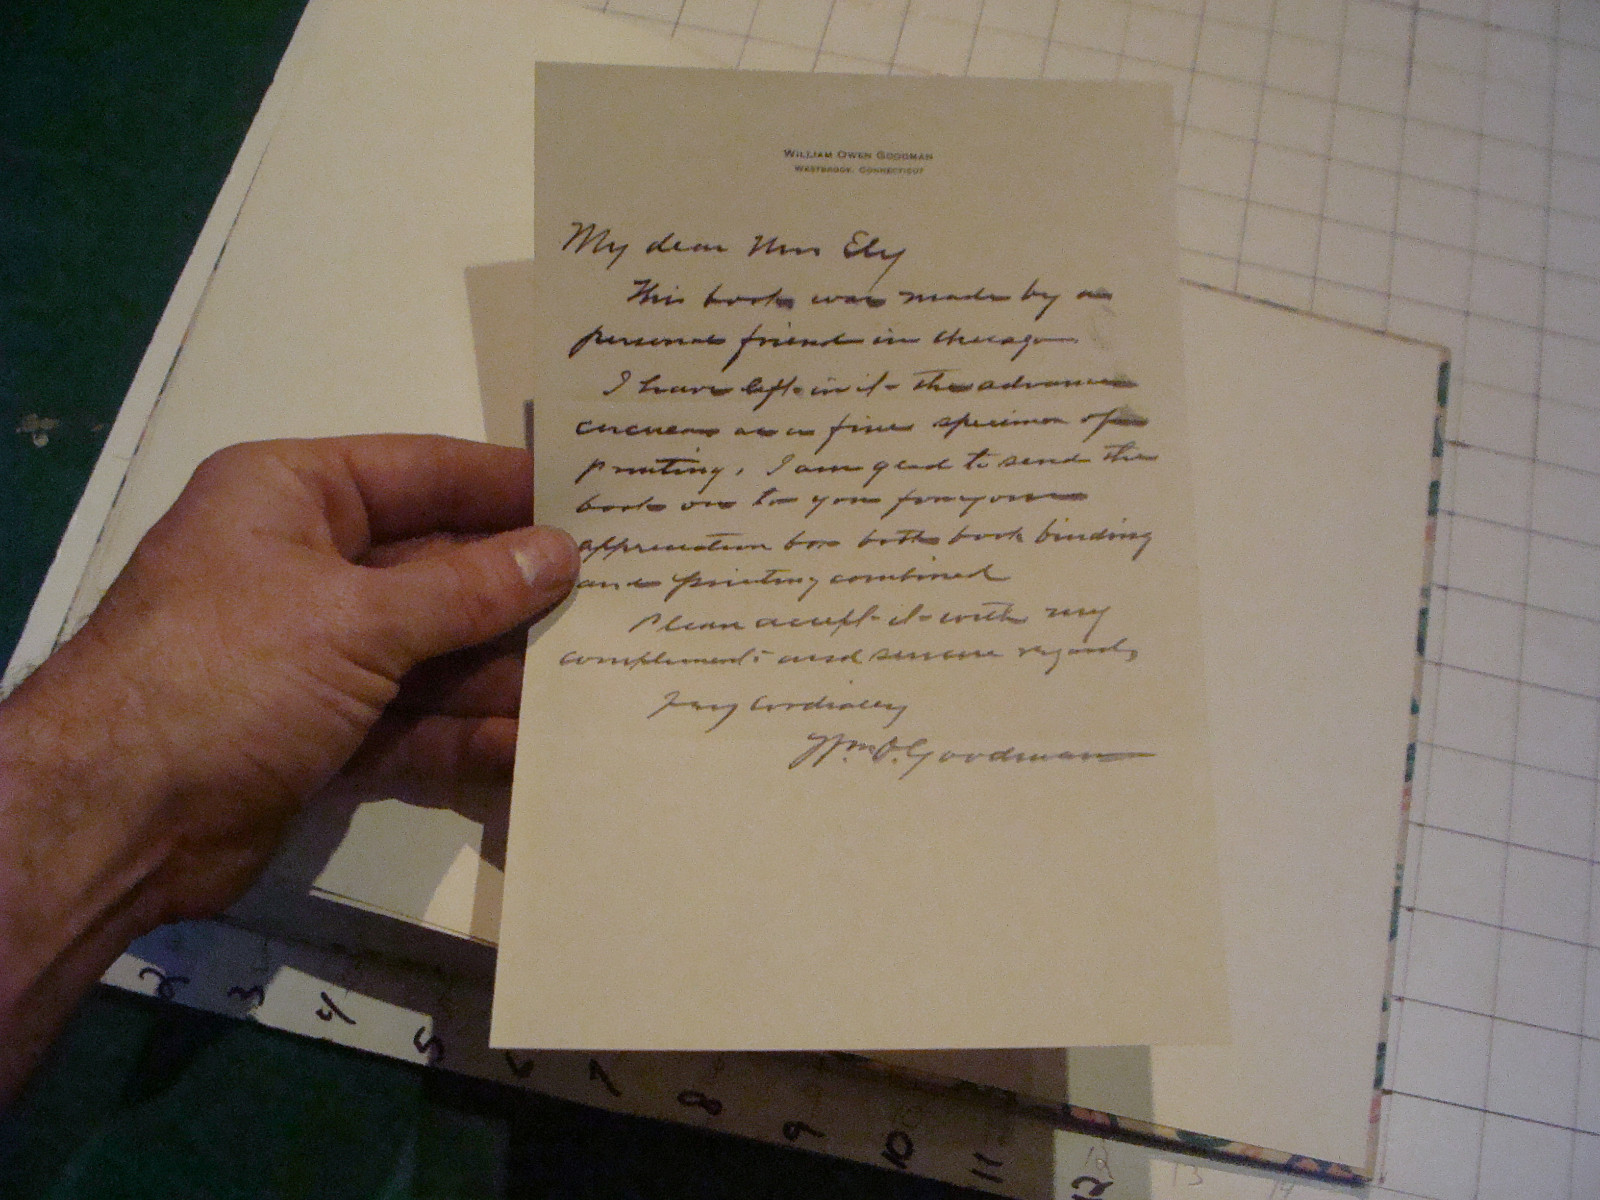 WILLIAM OWEN GOODMAN
WESTBROOK, CONNECTICUT
My dear Mrs Ely
This book was made by a
personal friend in Chicago
I have left in it the advance
circular as a fine specimen of
printing, I am glad to send the
book on to you for your
appreciation for both book binding
and printing combined
Please accept it with my
compliments and sincere regards
Very cordially
Wm. O. Goodman
2 3 4 5 6 7 8 9 10 11 12 13 14